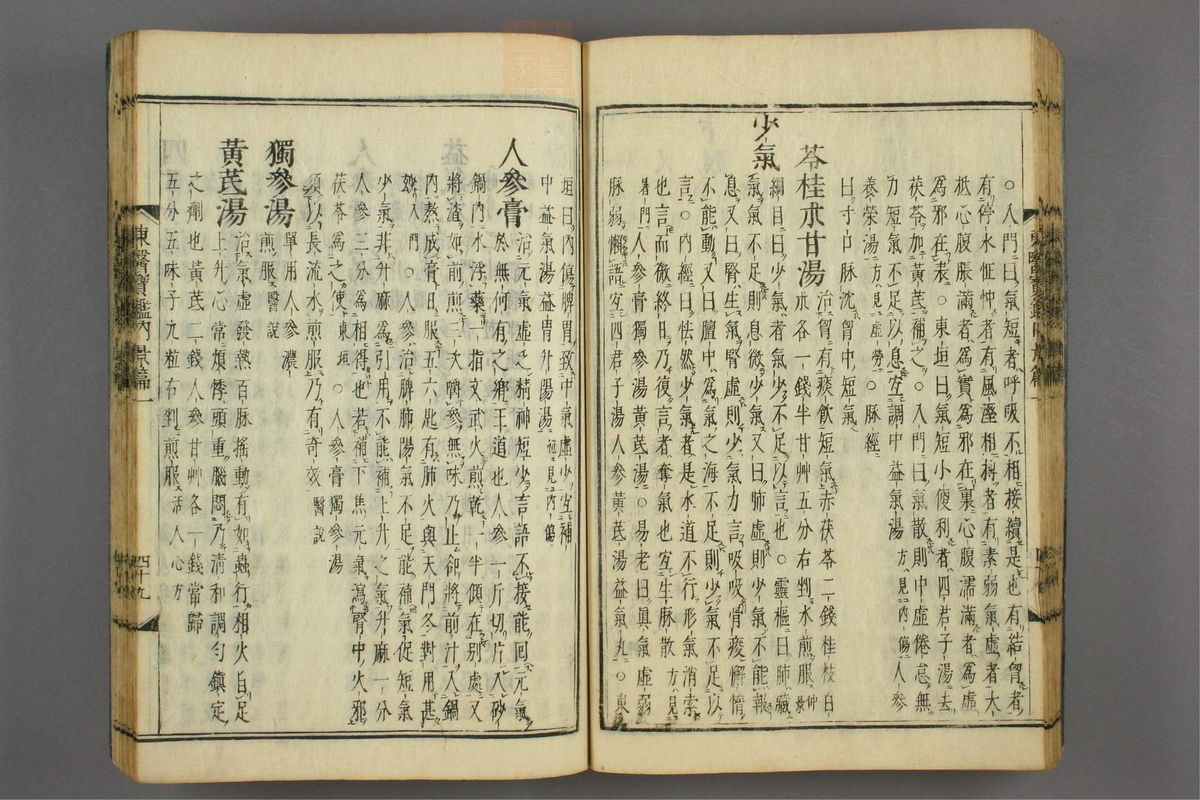 ○入門曰氣短者呼吸不相接續是也有結胷者
有停水怔忡者有風溼相搏者有素弱氣虛者大
抵心腹脹滿者爲實爲邪在裏心腹濡滿者爲虛
爲邪在表○東垣曰氣短小便利者四君子湯去
茯苓加黃芪補之○入門曰氣散則中虛倦怠無
力短氣不足以息宜調中益氣湯方見內傷人參
養榮湯方見虛勞○脉經
曰寸口脉沈胷中短氣
苓桂朮甘湯 治胷有痰飮短氣赤茯苓二錢桂枝白
朮各一錢半甘艸五分右剉水煎服仲景
少氣
綱目曰少氣者氣少不足以言也○靈樞曰肺藏
氣氣不足則息微少氣又曰肺虛則少氣不能報
息又曰腎生氣腎虛則少氣力言吸吸骨痠懈惰
不能動又曰膻中爲氣之海不足則少氣不足以
言○內經曰怯然少氣者是水道不行形氣消索
也言而微終日乃復言者奪氣也宜生脉散方見
暑門人參膏獨參湯黃芪湯○易老曰眞氣虛弱
脉弱懶語宜四君子湯人參黃芪湯益氣丸○東
垣曰內傷脾胃致中氣虛少宜補
中益氣湯益胃升陽湯並見內傷
人參膏 治元氣虛乏精神短少言語不接能回元氣
於無何有之鄕王道也人參一斤切片入砂
鍋內水浮藥一指文武火煎乾一半傾在別處又
將渣如前煎三次嚼參無味乃止卻將前汁入鍋
內熬成膏日服五六匙有肺火與天門冬對用甚
妙入門○人參治脾肺陽氣不足能補氣促短氣
少氣非升麻爲引用不能補上升之氣升麻一分
人參三分爲相得也若補下焦元氣瀉腎中火邪
茯苓爲之使東垣○人參膏獨參湯
須以長流水煎服乃有奇效醫說
獨參湯 單用人參濃
煎服醫說
黃芪湯 治氣虛發熱百脉搖動有如蟲行相火自足
上升心常煩悸頭重腦悶乃淸和調勻鎭定
之劑也黃芪二錢人參甘艸各一錢當歸
五分五味子九粒右剉煎服活人心方
東醫寶鑑內景篇一
四十九